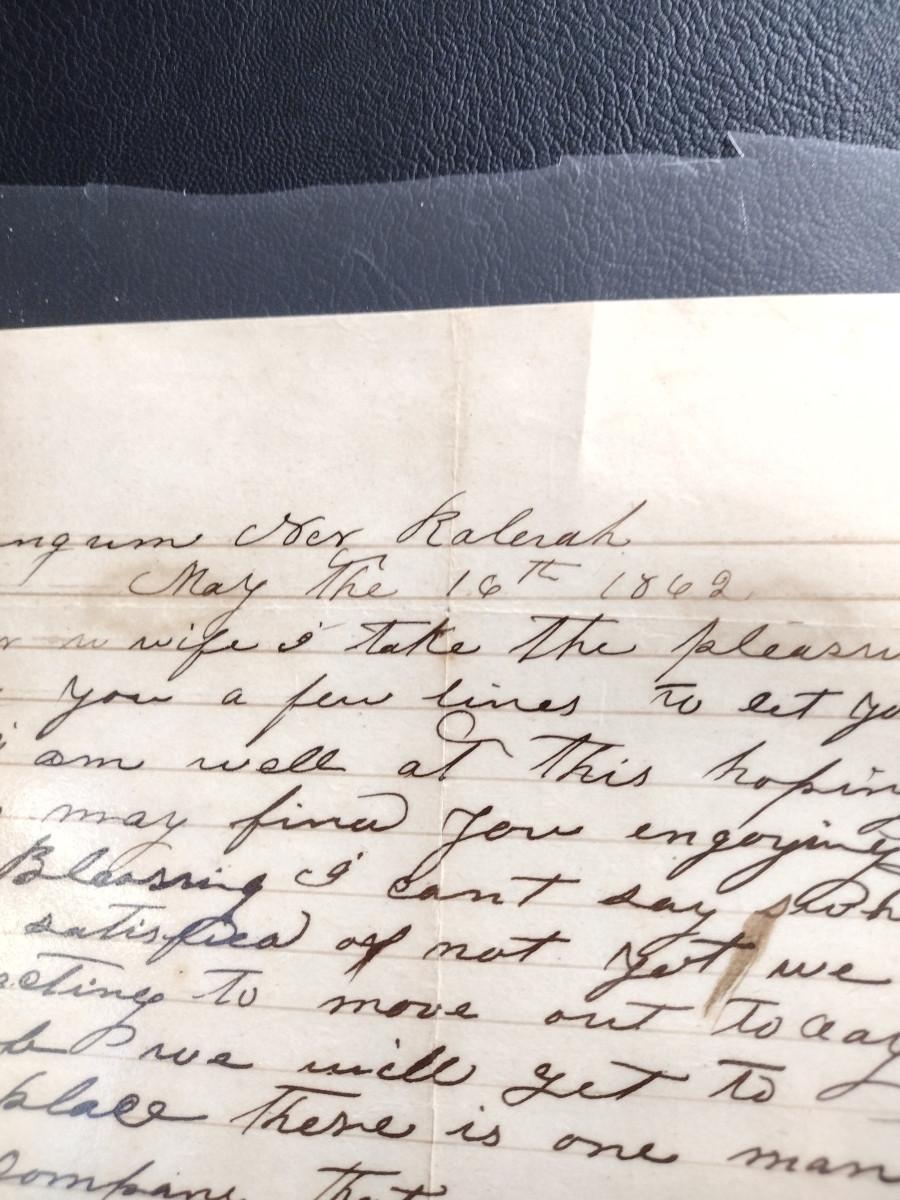 ngum Ner Raleiah
May the 16th 1862
wife i take the pleasu
you a few lines to let yo
i am well at this hoping
may find you engoying
Blessing I cant say wh
satisfied or not yet we
cting to move out today
we will get to
place there is one man
company that